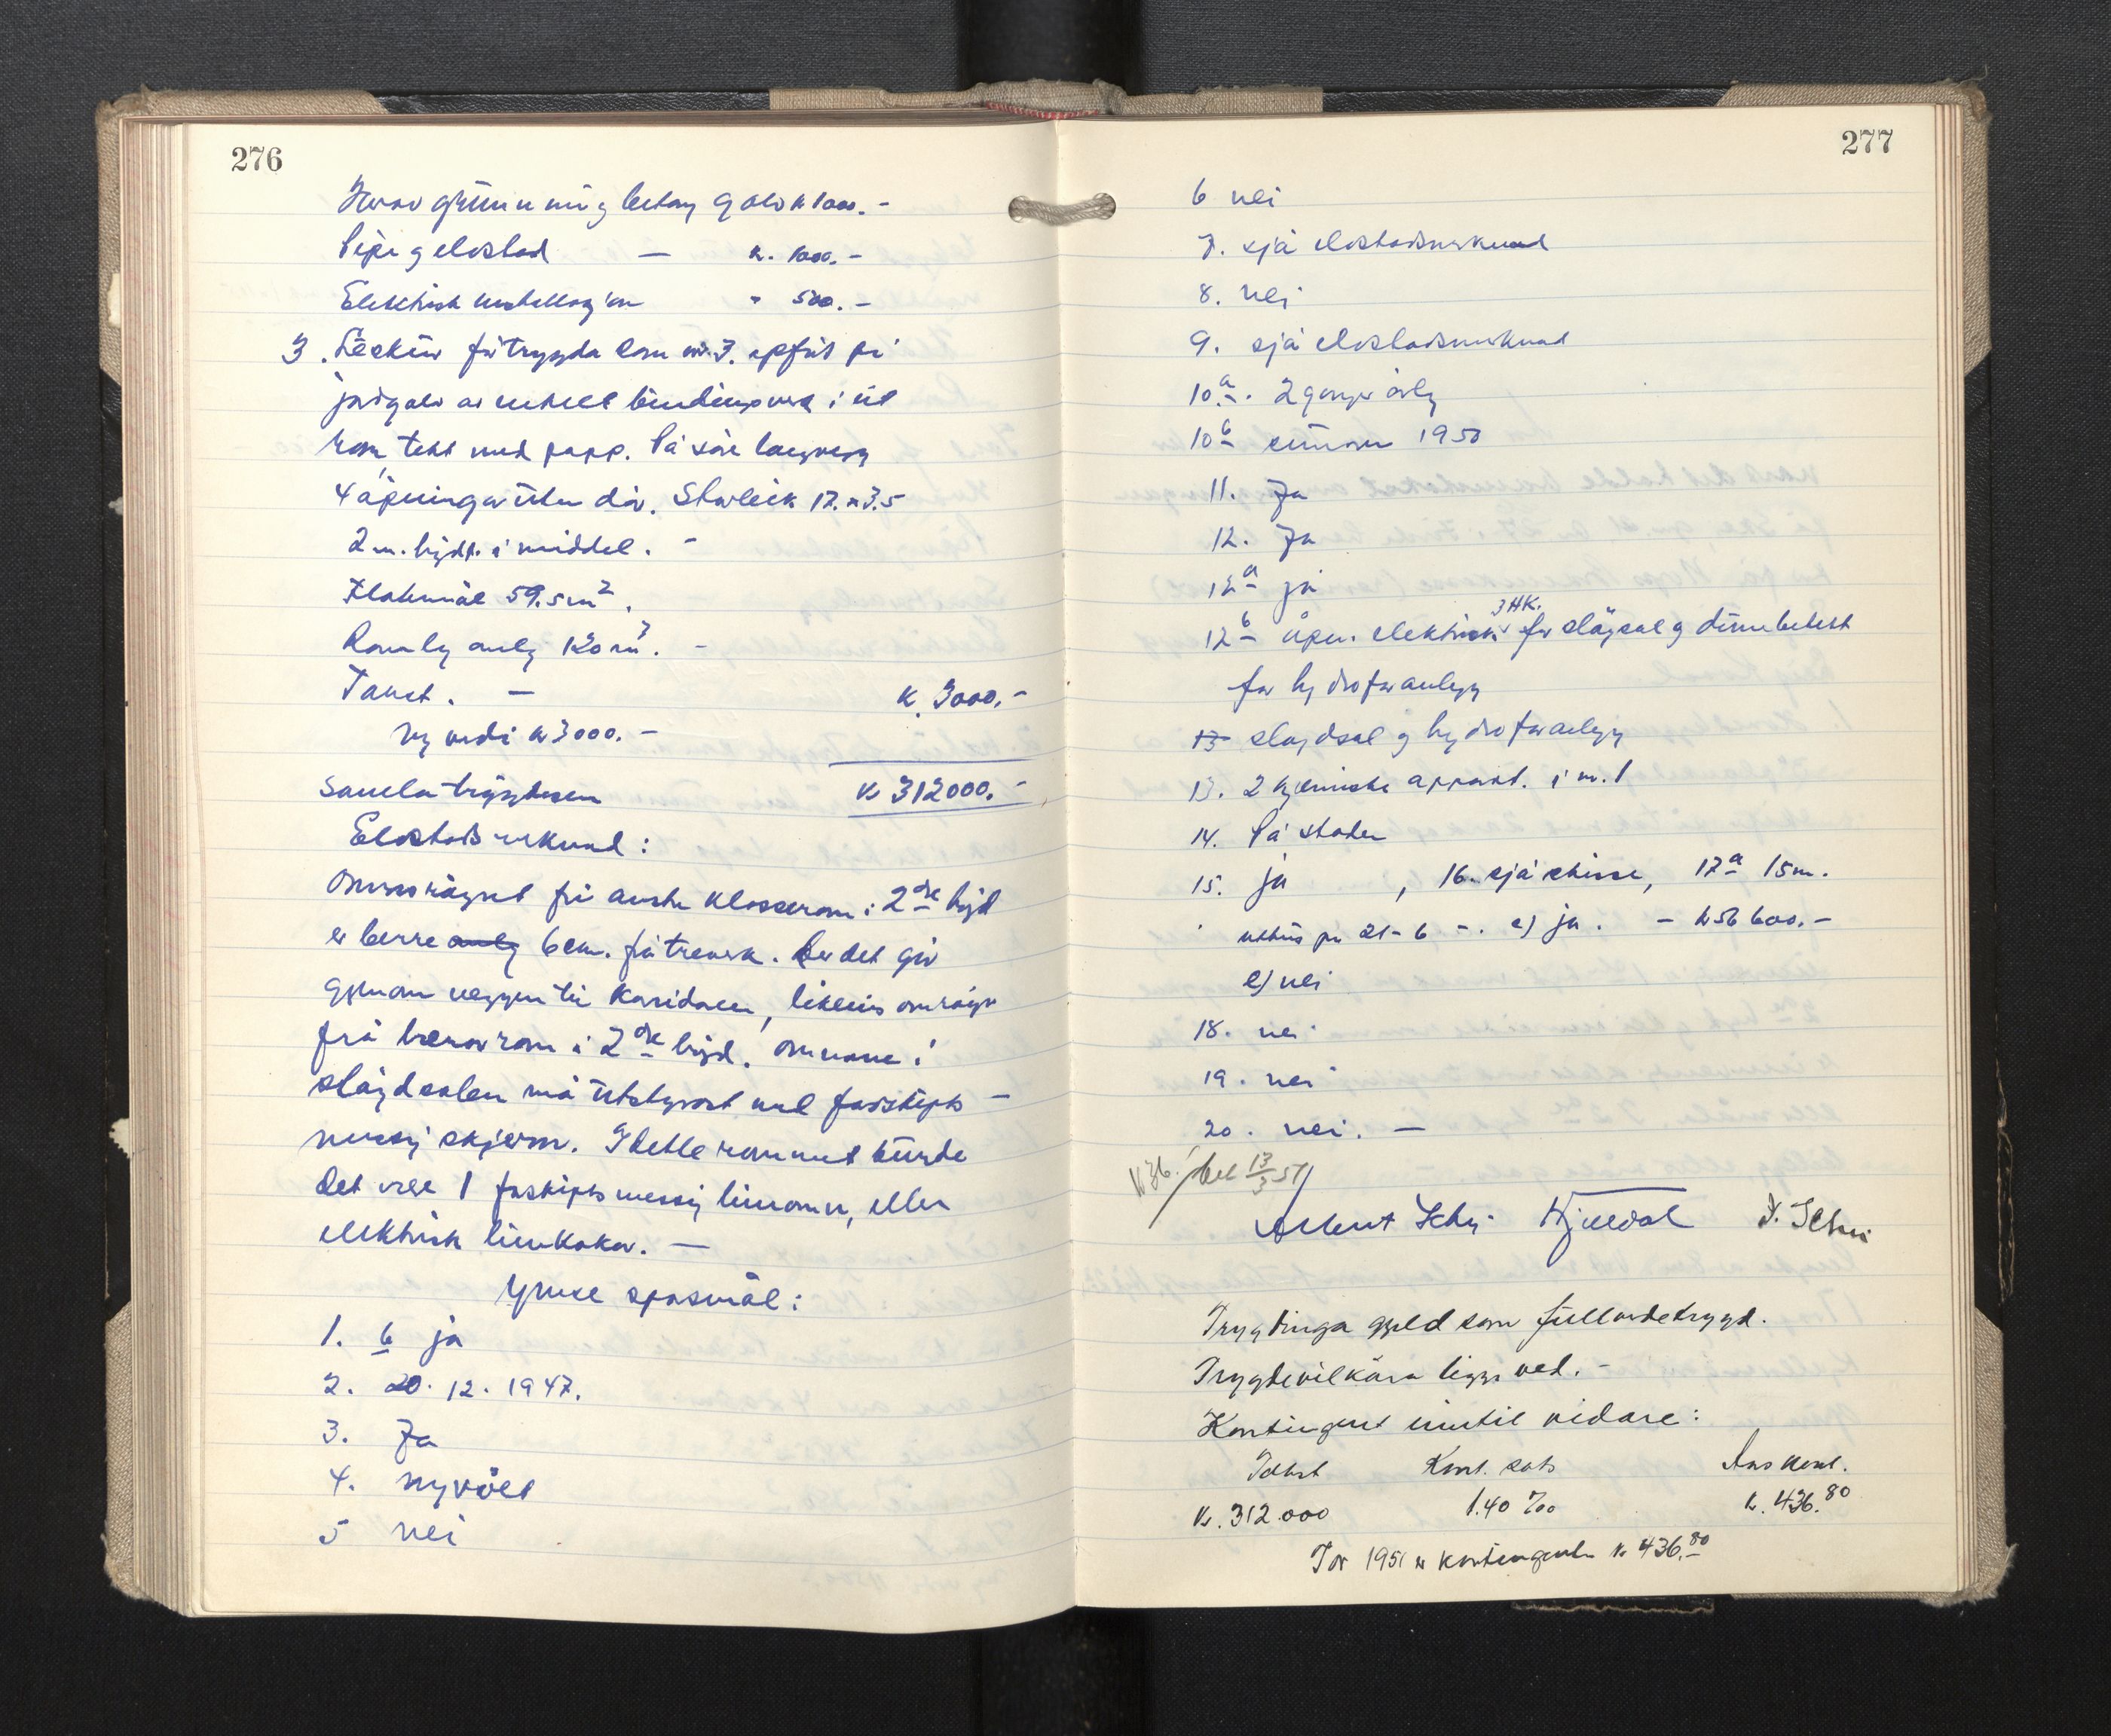 276
Herav grunnmur og betong golv k 1000.-
Pipe og eldstad — kr. 1000.-
Elektrisk installasjon " 500.-
3. Leskur fråtrygda som nr. 3. oppført på
jordgolv av enkelt bindingsverk i eit
rom, tekt med papp. På søre langvegg
4 åpninga utan dør. Storleik 17. x 3.5
2 m. högd. i middel. -
Flatemål 59.5 m².
Romleg innh 120 m³. -
Takst. — k. 3000.-
Ny verdi kr 3000.-
Samla trygdesum kr 312000.-
Eldstads merknad:
Omnsröyret frå austre klasserom i 2dre högd
er berre 6 cm. frå treverk. Der det gjev
gjenom veggen til koridoren, likeeins omröyr
frå lærarrom i 2dre högd. Omnane i
slöydsalen må utstyrast med forskrifts-
messig skjerm. I dette rommet burde
det vere 1 forskriftsmessig limomn, eller
elektrisk limkokar. —
Ymse spørsmål:
1. b ja
2. 20. 12. 1947.
3. Ja
4. nyvølt
5 nei
277
6 nei
7. sjå eldstadsmerknad
8. nei
9. sjå eldstadsmerknad
10.a. 2 gonger årleg
10b summar 1950
11. Ja
12. Ja
12a ja
12b åpen. elektrisk 3 HK. for slöysal og denne
for hydroforanlegg
13 slöydsal og hydroforanlegg
13. 2 kjemiske apparat. i nr. 1
14. På staden
15. ja , 16. sjå skisse, 17a 15m.
uthus pr 21-6 -. c) ja. - kr 56 600.-
e) nei
18. nei
19. nei
20. nei. —
k 36. bet 13/3 51
Albert Kjeldal
Trygdinga gjeld som fullverdetrygd.
Trygdevilkåra ligg ved. -
Kontingent inntil vidare:
Takst Kont. sats Års kont.
Kr. 312.000 1.40 ‰ kr. 436.80
For 1951 er kontingenten kr 436.80